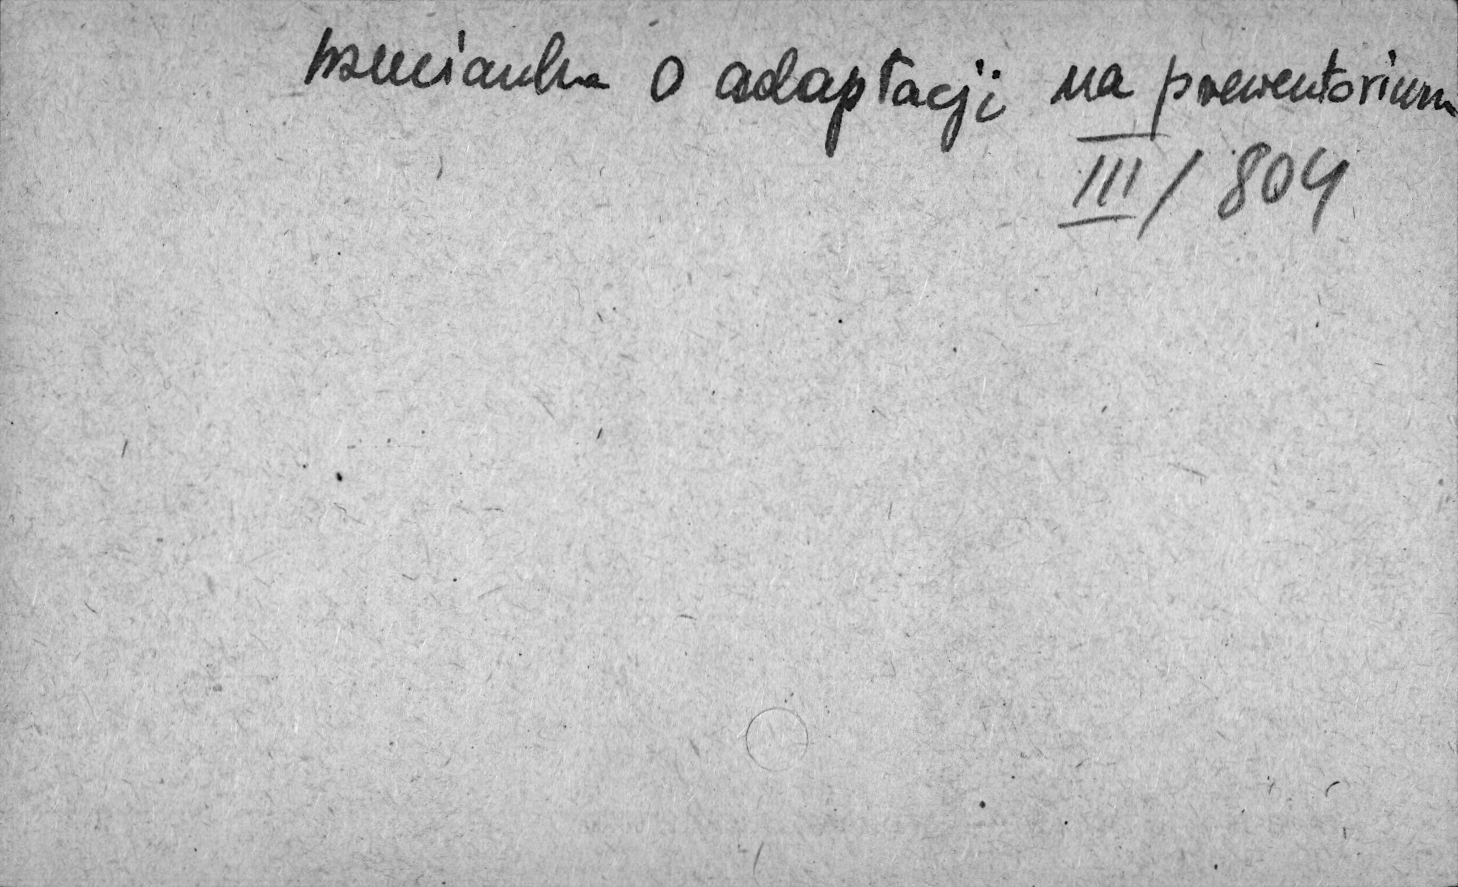 wzmianka o adaptacji na prewentorium
III/804